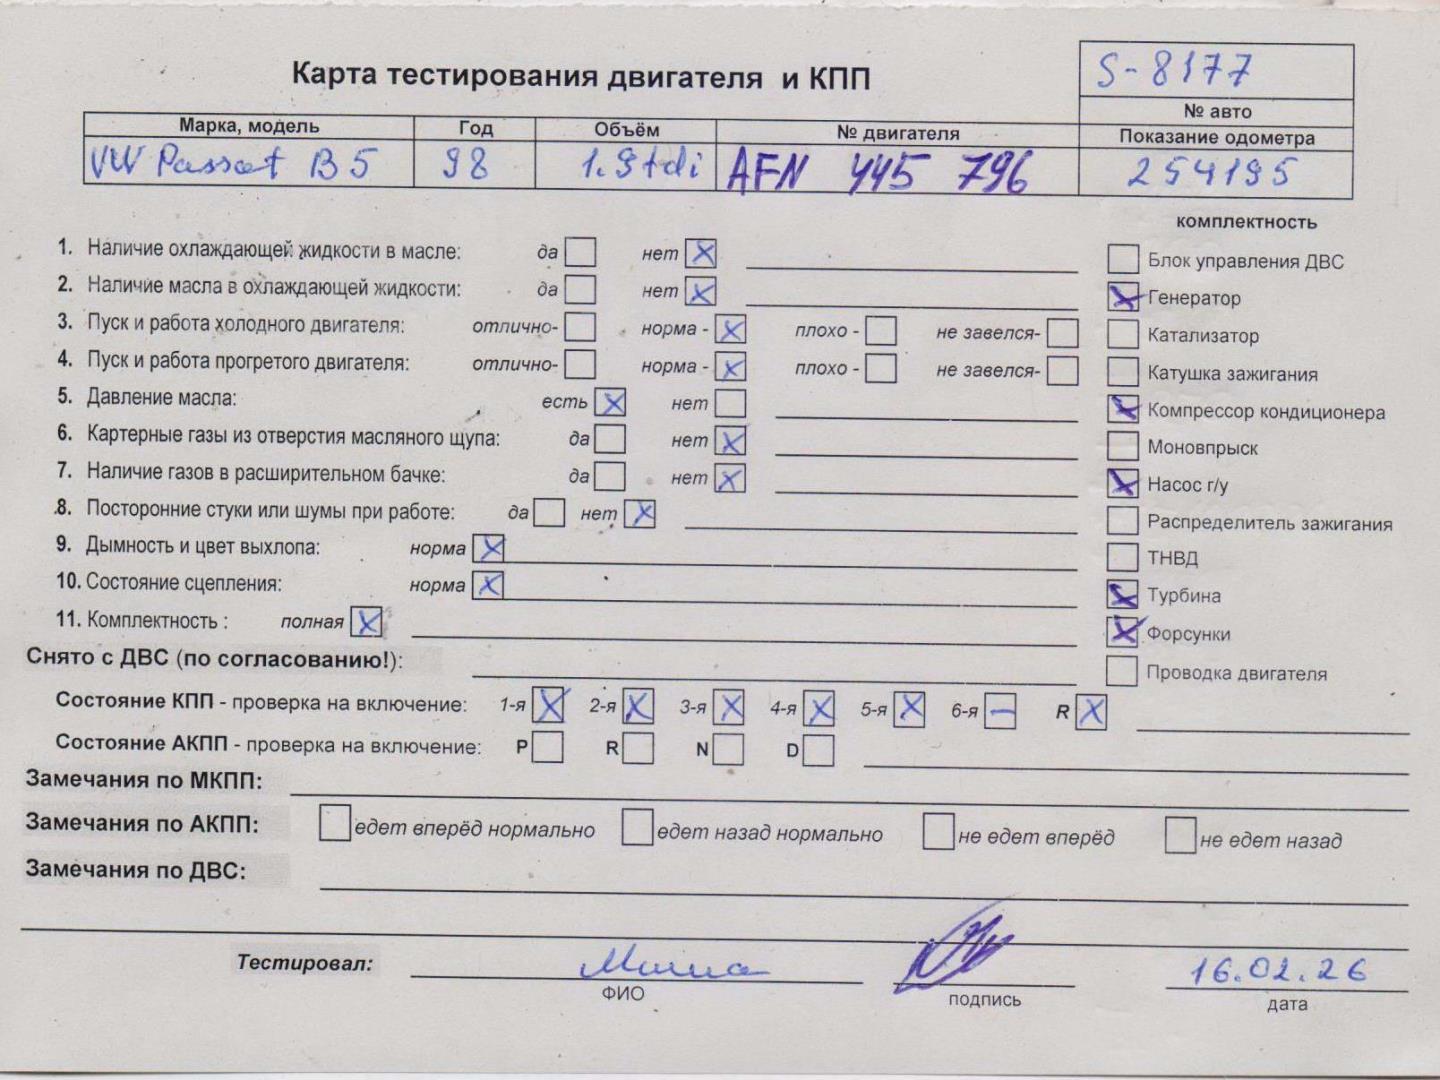 Карта тестирования двигателя и КПП
S-8177
№ авто
Марка, модель Год Объём № двигателя Показание одометра
VW Passat B5 98 1.9tdi AFN 445 796 254195
комплектность
1. Наличие охлаждающей жидкости в масле: да нет X
Блок управления ДВС
2. Наличие масла в охлаждающей жидкости: да нет X
X Генератор
3. Пуск и работа холодного двигателя: отлично- норма - X плохо - не завелся-
Катализатор
4. Пуск и работа прогретого двигателя: отлично- норма - X плохо - не завелся-
Катушка зажигания
5. Давление масла: есть X нет
X Компрессор кондиционера
6. Картерные газы из отверстия масляного щупа: да нет X
Моновпрыск
7. Наличие газов в расширительном бачке: да нет X
X Насос г/у
8. Посторонние стуки или шумы при работе: да нет X
Распределитель зажигания
9. Дымность и цвет выхлопа: норма X
ТНВД
10. Состояние сцепления: норма X
X Турбина
11. Комплектность : полная X
X Форсунки
Снято с ДВС (по согласованию!):
Проводка двигателя
Состояние КПП - проверка на включение: 1-я X 2-я X 3-я X 4-я X 5-я X 6-я — R X
Состояние АКПП - проверка на включение: P R N D
Замечания по МКПП:
Замечания по АКПП: едет вперёд нормально едет назад нормально не едет вперёд не едет назад
Замечания по ДВС:
Тестировал: Миша 16.02.26
ФИО подпись дата